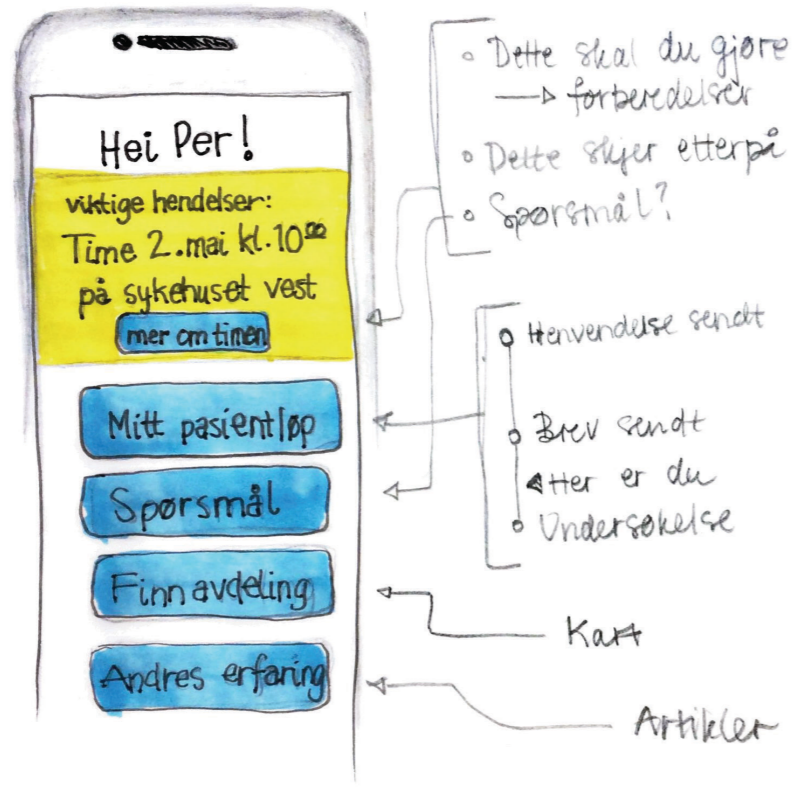 Hei Per!
viktige hendelser:
Time 2.mai kl.10⁰⁰
på sykehuset vest
mer om timen
Mitt pasientløp
Spørsmål
Finn avdeling
Andres erfaring
Dette skal du gjøre
→ forberedelser
Dette skjer etterpå
Spørsmål?
Henvendelse sendt
Brev sendt
Her er du
Undersøkelse
Kart
Artikler